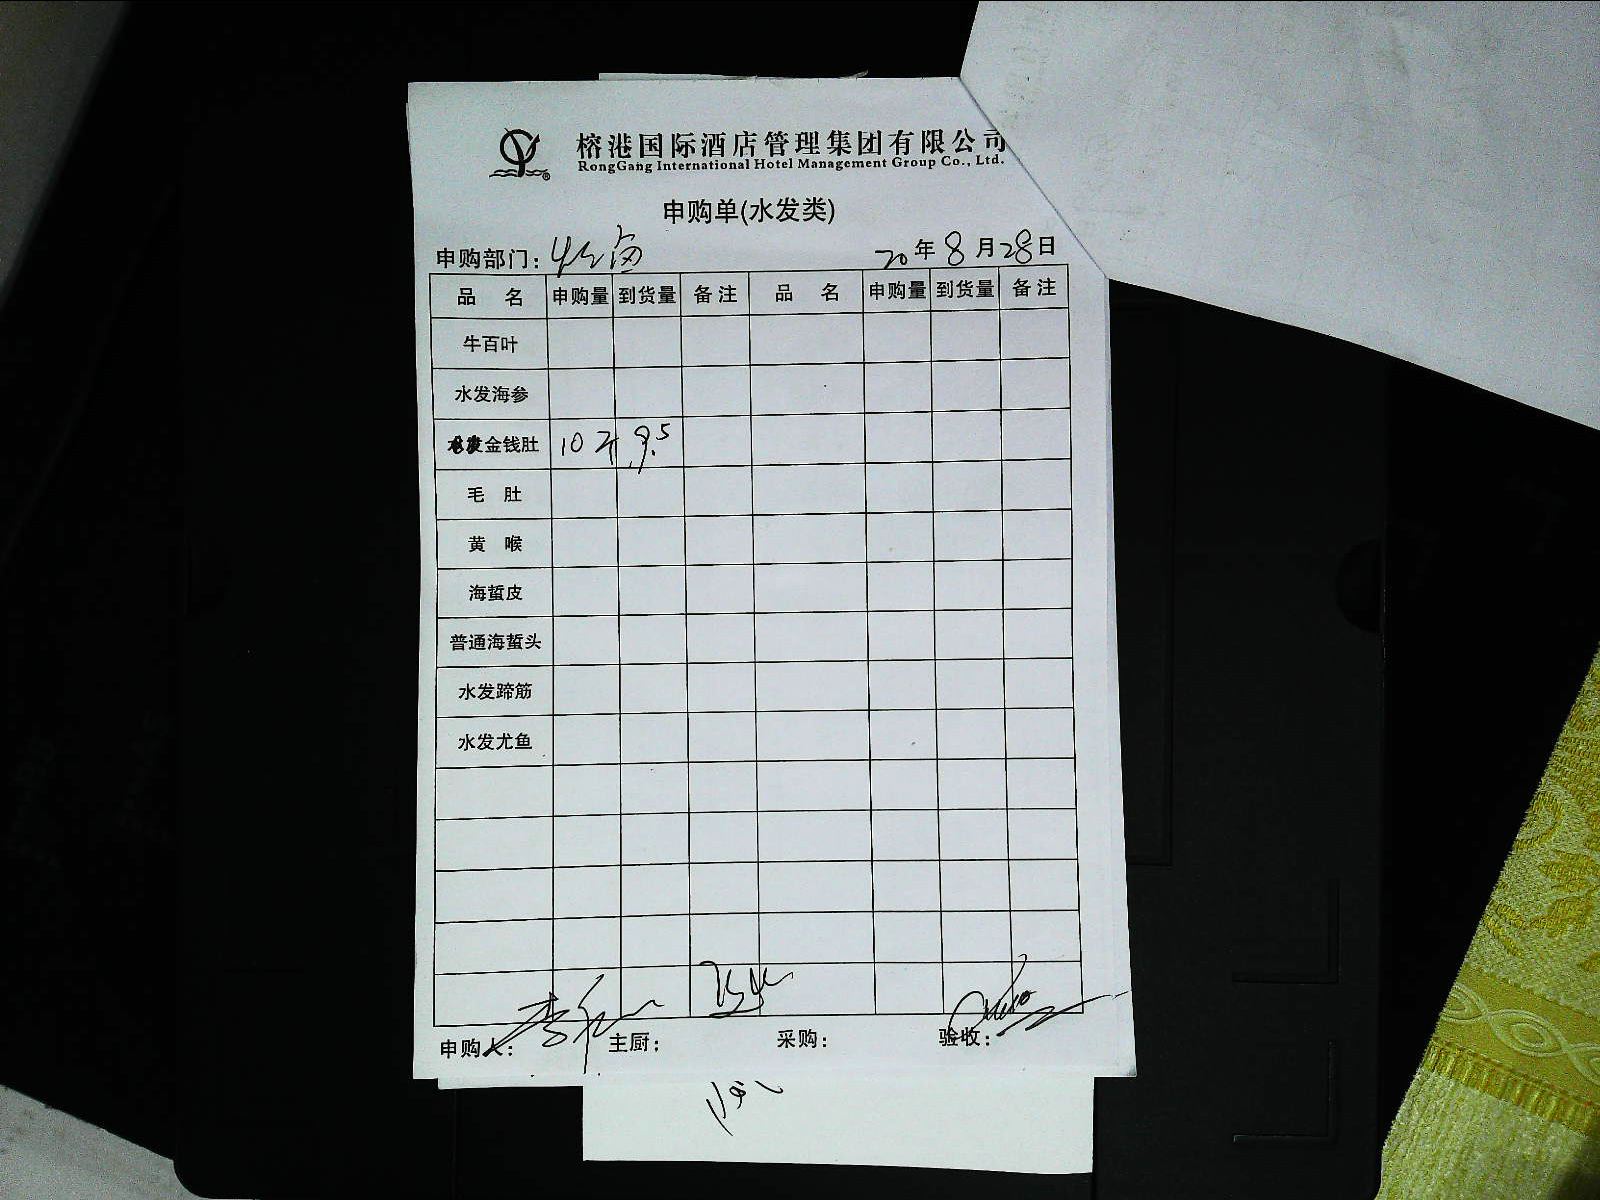 榕港国际酒店管理集团有限公司
RongGang International Hotel Management Group Co., Ltd.
申购单(水发类)
申购部门： 20年8月28日
品 名 申购量 到货量 备注 品 名 申购量 到货量 备注
牛百叶
水发海参
水发金钱肚 10斤 9.5
毛 肚
黄 喉
海蜇皮
普通海蜇头
水发蹄筋
水发尤鱼
申购人： 主厨： 采购： 验收：